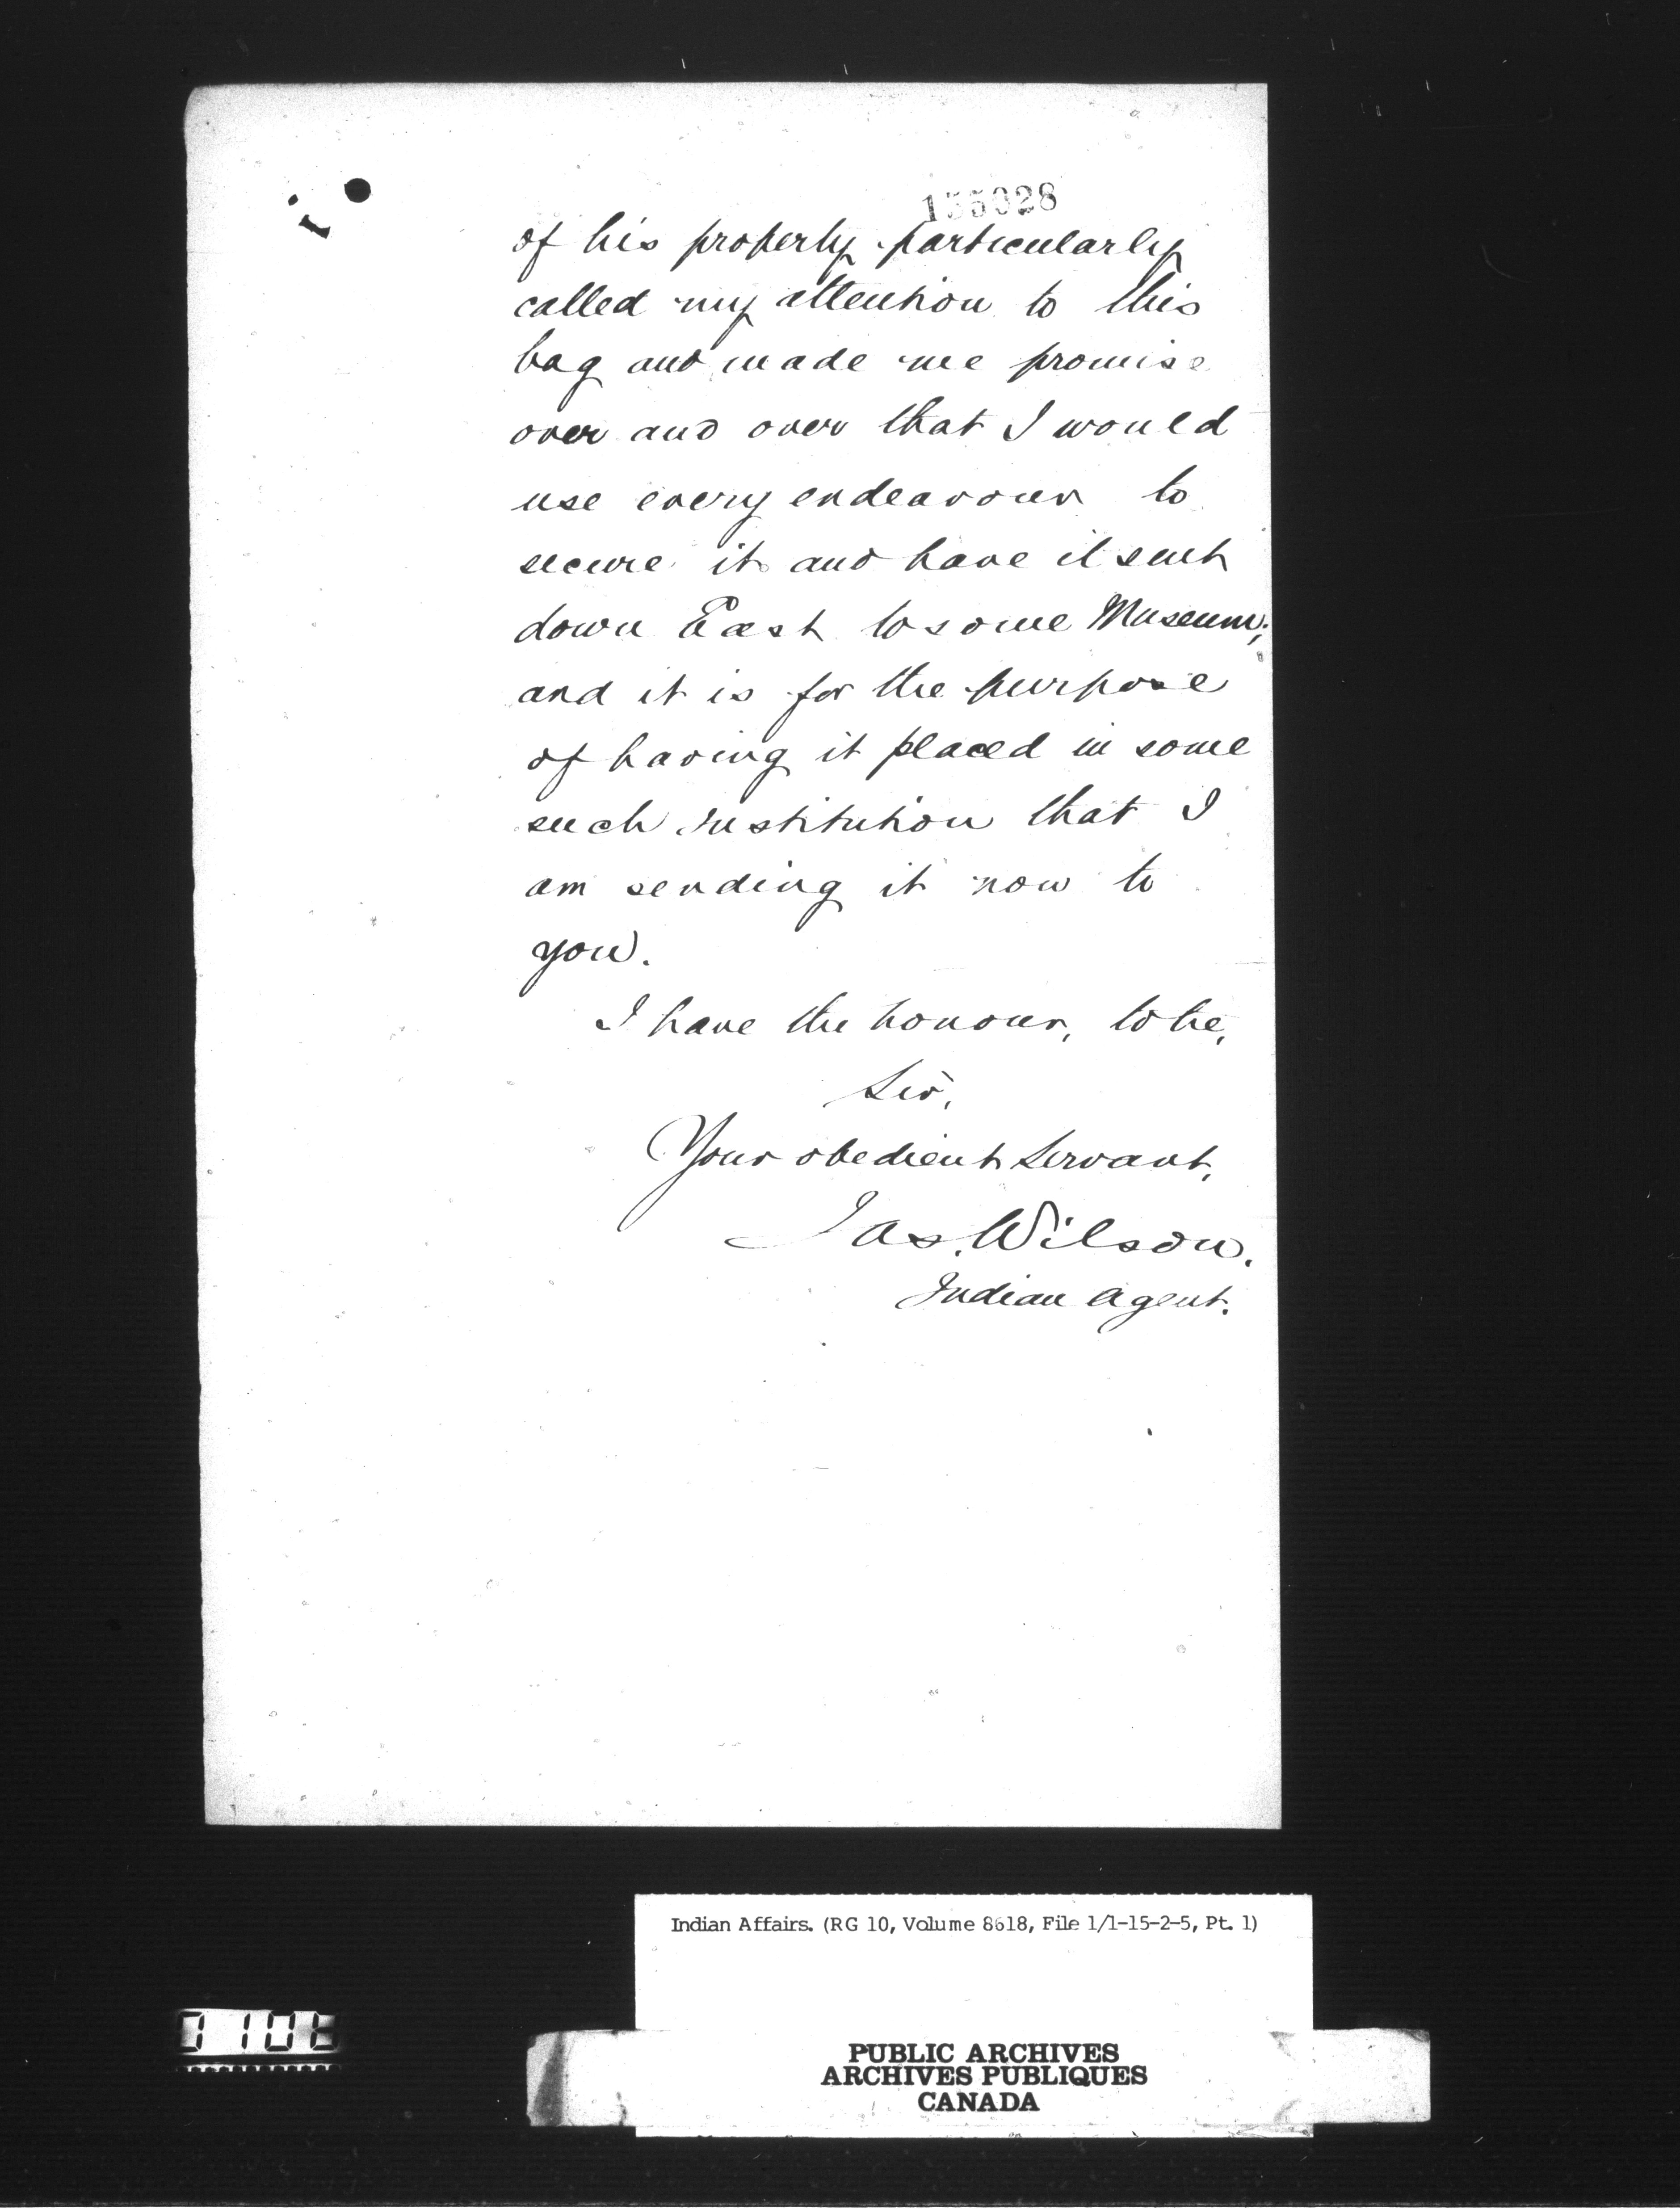 155028
of his property particularly
called my attention to this
bag and made me promise
over and over that I would
use every endeavour to
secure it and have it sent
down East to some Museum;
and it is for the purpose
of having it placed in some
such institution that I
am sending it now to
you.
I have the honour, to be,
Sir,
Your obedient Servant,
Jas. Wilson.
Indian Agent.
Indian Affairs. (RG 10, Volume 8618, File 1/1-15-2-5, Pt. 1)
PUBLIC ARCHIVES
ARCHIVES PUBLIQUES
CANADA